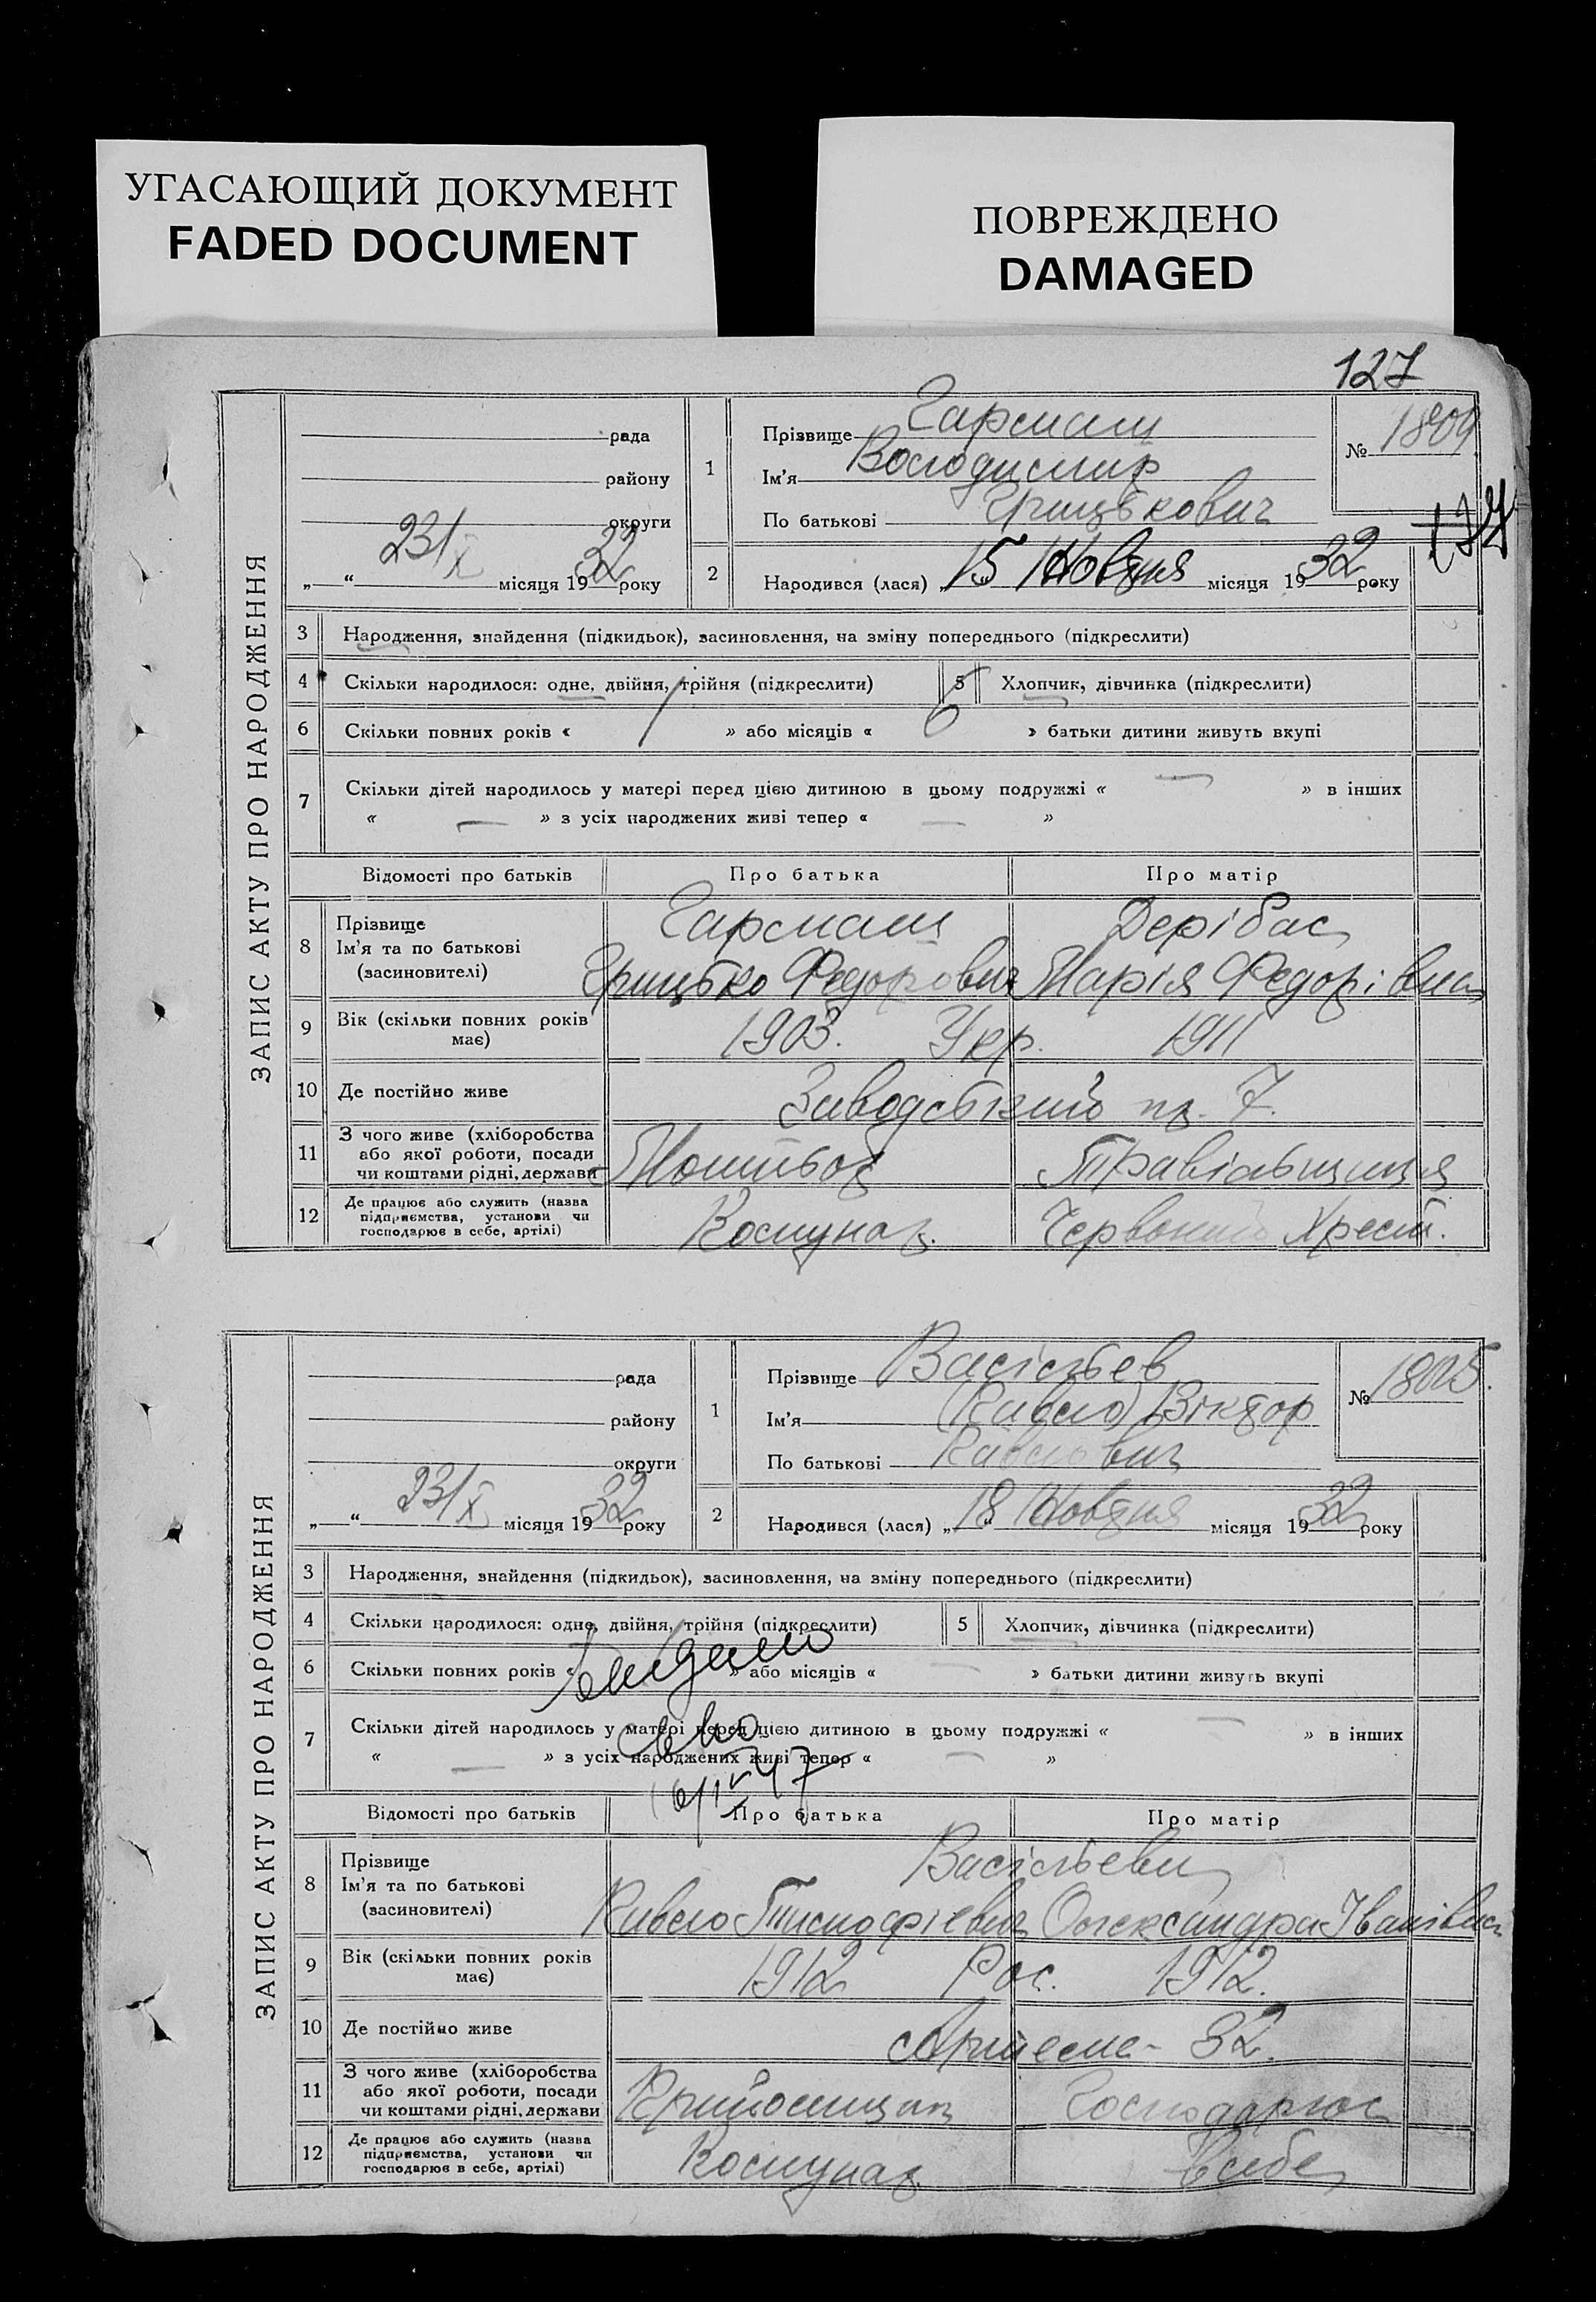 УГАСАЮЩИЙ ДОКУМЕНТ
FADED DOCUMENT
ПОВРЕЖДЕНО
DAMAGED
127
ЗАПИС АКТУ ПРО НАРОДЖЕННЯ
рада
району
округи
23/X
„ “ місяця 1932 року
1
Прізвище Гармаш
Ім’я Володимир
По батькові Грицькович
№ 1804
2
Народився (лася) „15 Жовтня місяця 1932 року
3 Народження, знайдення (підкидьок), засиновлення, на зміну попереднього (підкреслити)
4 Скільки народилося: одне, двійня, трійня (підкреслити) 5 Хлопчик, дівчинка (підкреслити)
6 Скільки повних років « 1 » або місяців « 6 » батьки дитини живуть вкупі
7 Скільки дітей народилось у матері перед цією дитиною в цьому подружжі « — » в інших
« — » з усіх народжених живі тепер « — »
Відомості про батьків Про батька Про матір
8 Прізвище
Ім’я та по батькові
(засиновителі)
Гармаш Дерібас
Грицько Федорович Марія Федорівна
9 Вік (скільки повних років має) 1903. Укр. 1911
10 Де постійно живе Заводський п. 7.
11 З чого живе (хліборобства
або якої роботи, посади
чи коштами рідні, держави
12 Де працює або служить (назва
підприємства, установи чи
господарює в себе, артілі)
Комунар. Червоний Хрест.
ЗАПИС АКТУ ПРО НАРОДЖЕННЯ
рада
району
округи
23/X
„ “ місяця 1932 року
1
Прізвище Васільєв
Ім’я (Кавело) Віктор
По батькові
№ 1805.
2
Народився (лася) „18 Жовтня місяця 1932 року
3 Народження, знайдення (підкидьок), засиновлення, на зміну попереднього (підкреслити)
4 Скільки народилося: одне, двійня, трійня (підкреслити) 5 Хлопчик, дівчинка (підкреслити)
6 Скільки повних років « » або місяців « — » батьки дитини живуть вкупі
7 Скільки дітей народилось у матері перед цією дитиною в цьому подружжі « — » в інших
« — » з усіх народжених живі тепер « — »
Відомості про батьків Про батька Про матір
8 Прізвище
Ім’я та по батькові
(засиновителі)
Васільєви
Олександра Іванівна
9 Вік (скільки повних років має) 1912 Рос. 1912.
10 Де постійно живе Артема - 32.
11 З чого живе (хліборобства
або якої роботи, посади
чи коштами рідні, держави
Господарює
12 Де працює або служить (назва
підприємства, установи чи
господарює в себе, артілі)
Комунар в себе